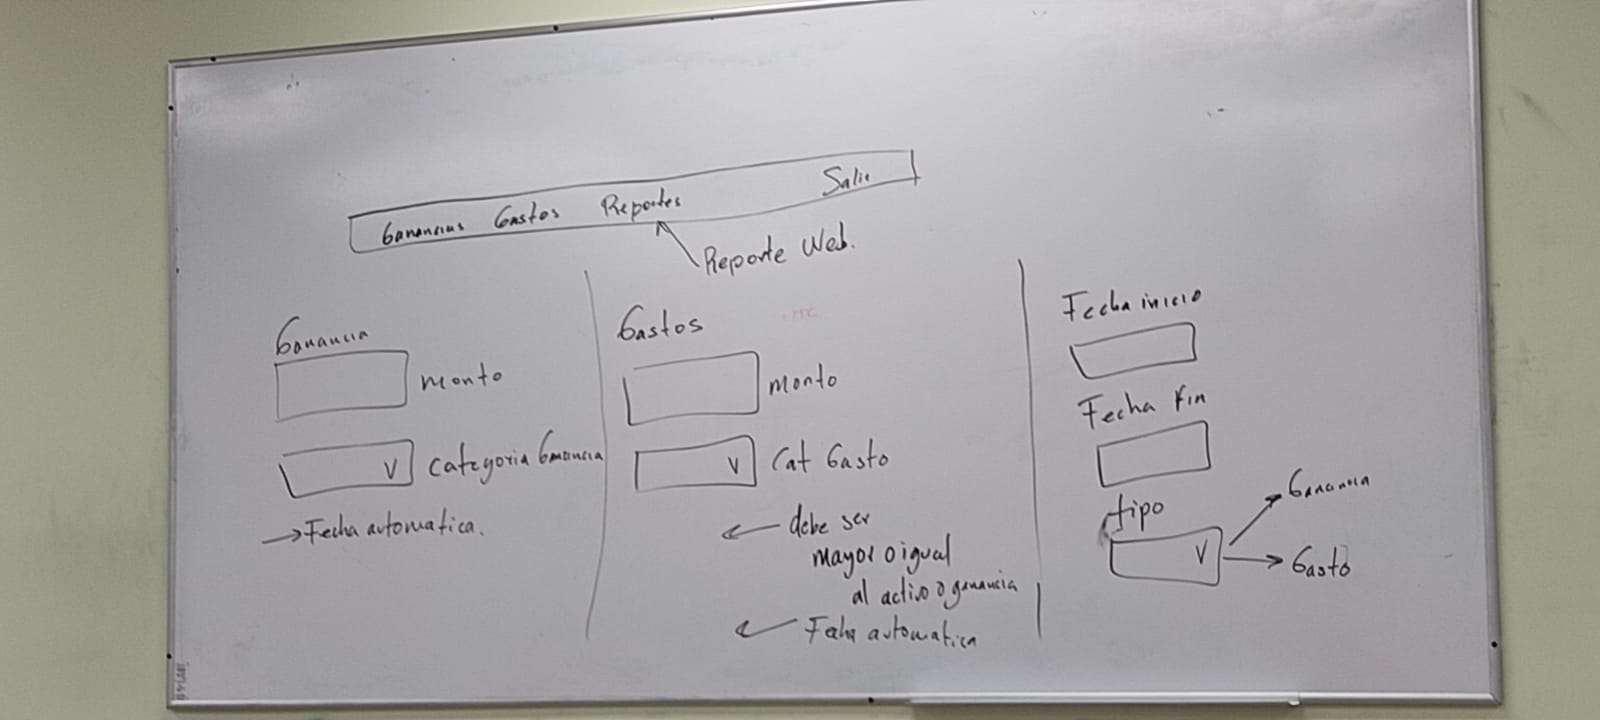 Ganancias Gastos Reportes Salir
Reporte Web.
Ganancia
monto
V categoria Ganancia
→Fecha automatica.
Gastos
monto
V Cat Gasto
← debe ser
mayor o igual
al activo o ganancia
← Fecha automatica
Fecha inicio
Fecha Fin
tipo
V
Ganancia
Gasto